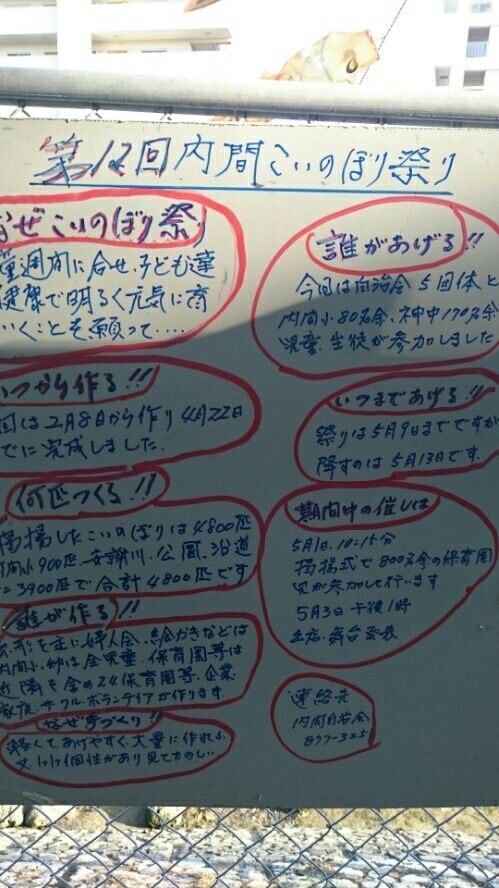 第12回内間こいのぼり祭り
なぜこいのぼり祭り
童週間に合せ、子ども達
健康で明るく元気に育
いくことを願って……
いつから作る!!
回は2月8日から作り4月22日
でに完成しました。
何匹つくる!!
掲揚したこいのぼりは4800匹
内間小900匹、安謝川、公園、沿道
に3900匹で合計4800匹です
誰が作る!!
を主に婦人会、絵かきなどは
内間小、幼は全児童、保育園等は
近隣を含め24保育園等、企業
家庭、サークル、ボランティアが作ります
なぜ手づくり!!
軽くてあげやすく、大量に作れる。
又、1匹1匹個性があり見てたのしい。
誰があげる!!
今回は自治会5団体と
内間小80名余、神中170名余
児童、生徒が参加しました
いつまであげる!!
祭りは5月9日までですが
降すのは5月13日です。
期間中の催しは
5月1日、10:15分
掲揚式で800名余の保育園
児が参加して行います
5月3日午後1時
出店、舞台発表
連絡先
内間自治会
877-325